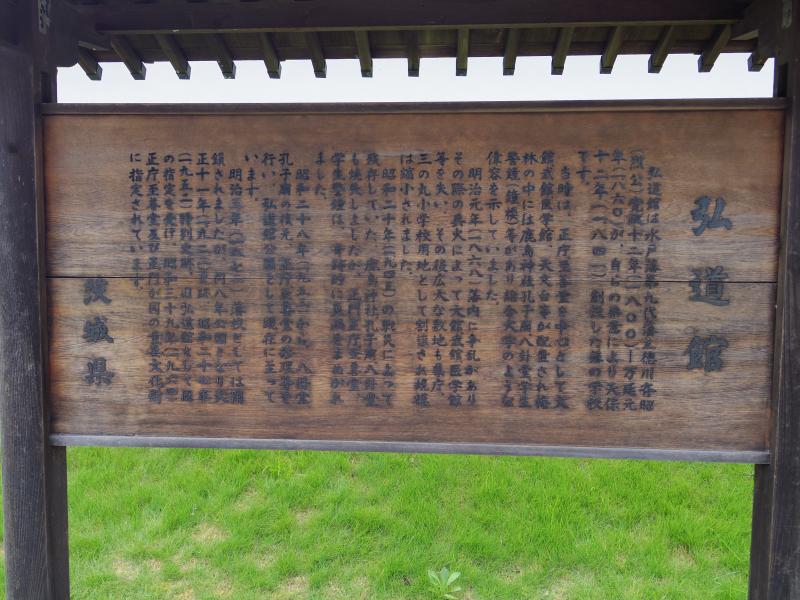 弘道館
弘道館は水戸藩第九代藩主徳川斉昭
(烈公)寛政十二年(一八〇〇)―万延元
年(一八六〇)が、自らの発意により天保
十二年(一八四一)創設した藩の学校
です。
当時は、正庁至善堂を中心として文
館武館医学館、天文台等が配置され梅
林の中には鹿島神社孔子廟八卦堂学生
警鐘(鐘楼)等があり総合大学のような
偉容を示していました。
明治元年(一八六八)藩内に争乱があり
その際の兵火によって文館武館医学館
等を失い、その後広大な敷地も県庁、
三の丸小学校用地として割譲され規模
は縮小されました。
昭和二十年(一九四五)の戦災によって
残存していた、鹿島神社孔子廟八卦堂
も焼失しましたが、正門正庁至善堂、
学生警鐘は、奇跡的に
ました。
昭和二十八年(一九五三)から、八卦堂
孔子廟の復元、正庁至善堂の修理等を
行い、弘道館公園として現在に至って
います。
明治五年(一八七二)藩校としては閉
鎖されましたが、同八年公園となり大
正十一年(一九二二)史跡、昭和二十七年
(一九五二)特別史跡、旧弘道館として国
の指定を受け、昭和三十九年(一九六四)
正庁至善堂及び正門が国の重要文化財
に指定されています。
茨城県